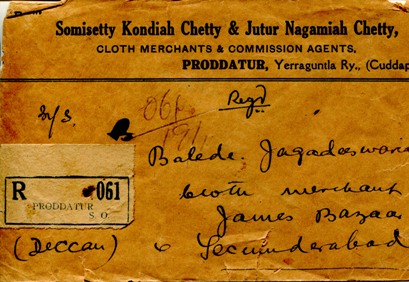 Somisetty Kondiah Chetty & Jutur Nagamiah Chetty,
CLOTH MERCHANTS & COMMISSION AGENTS,
PRODDATUR, Yerraguntla Ry., (Cuddap
Regd
M/s.
061
Balede. Jagadeeswara
Cloth merchant
James Bazaar
R 061
PRODDATUR
S. O.
(Deccan) Secunderabad